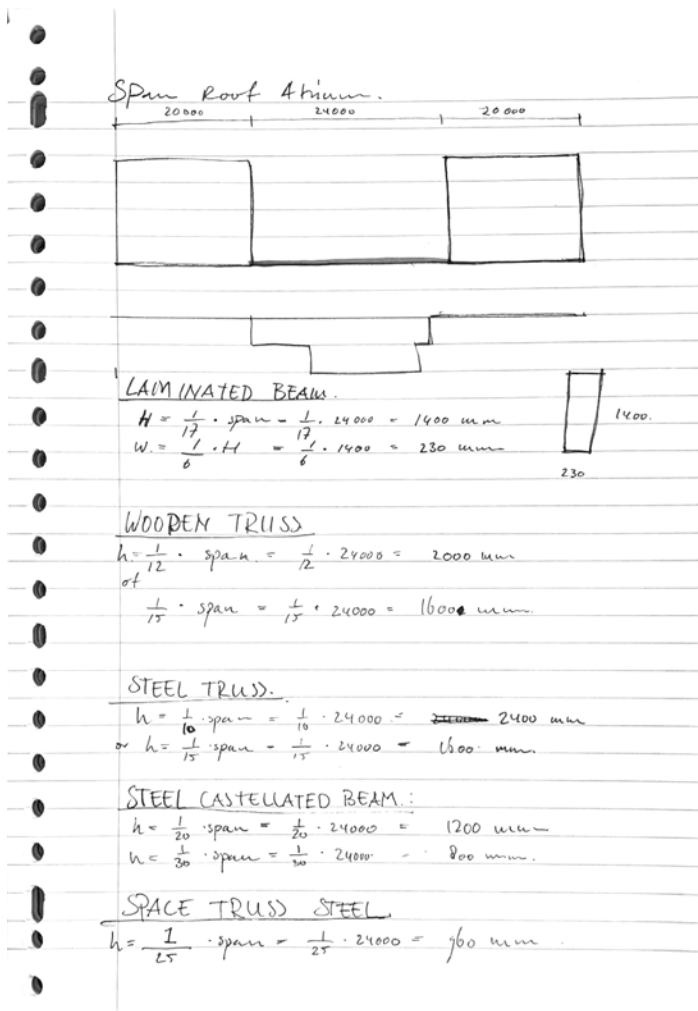 Span Roof Atrium.
20000 24000 20 000
LAMINATED BEAM.
H = 1/17 · span = 1/17 · 24000 = 1400 mm
W. = 1/6 · H = 1/6 · 1400 = 230 mm
1400.
230
WOODEN TRUSS
h = 1/12 · span. = 1/12 · 24000 = 2000 mm
of
1/15 · span = 1/15 · 24000 = 1600 mm.
STEEL TRUSS.
h = 1/10 · span = 1/10 · 24000 = 2400 mm
or h = 1/15 · span = 1/15 · 24000 = 1600 mm.
STEEL CASTELLATED BEAM.:
h = 1/20 · span = 1/20 · 24000 = 1200 mm
h = 1/30 · span = 1/30 · 24000 = 800 mm.
SPACE TRUSS STEEL
h = 1/25 · span = 1/25 · 24000 = 960 mm.